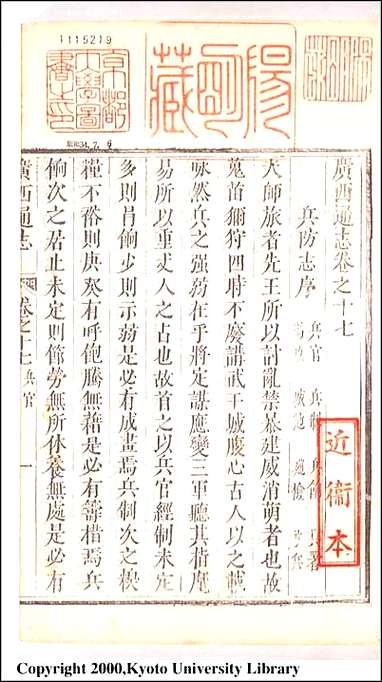 1115219
京都
大學圖
書之印
陽明藏
34.7.6
近衞本
廣西通志卷之十七
兵防志序 兵官 兵制
夫師旅者先王所以討亂禁暴建威消萌者也故
蒐苗獮狩四時不廢講武干城腹心古人以之載
咏然兵之强弱在乎將定謀應變三軍聽其指麾
易所以重丈人之占也故首之以兵官經制未定
多則冒餉少則示弱是必有成畫焉兵制次之糗
糧不裕則庚癸有呼飽騰無藉是必有籌措焉兵
餉次之居止未定則節勞無所休養無處是必有
廣西通志 卷之十七 兵官 一
Copyright 2000,Kyoto University Library